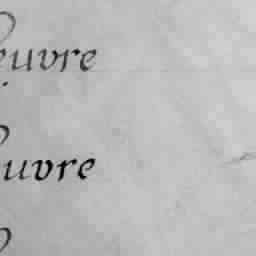 euvre
uvre